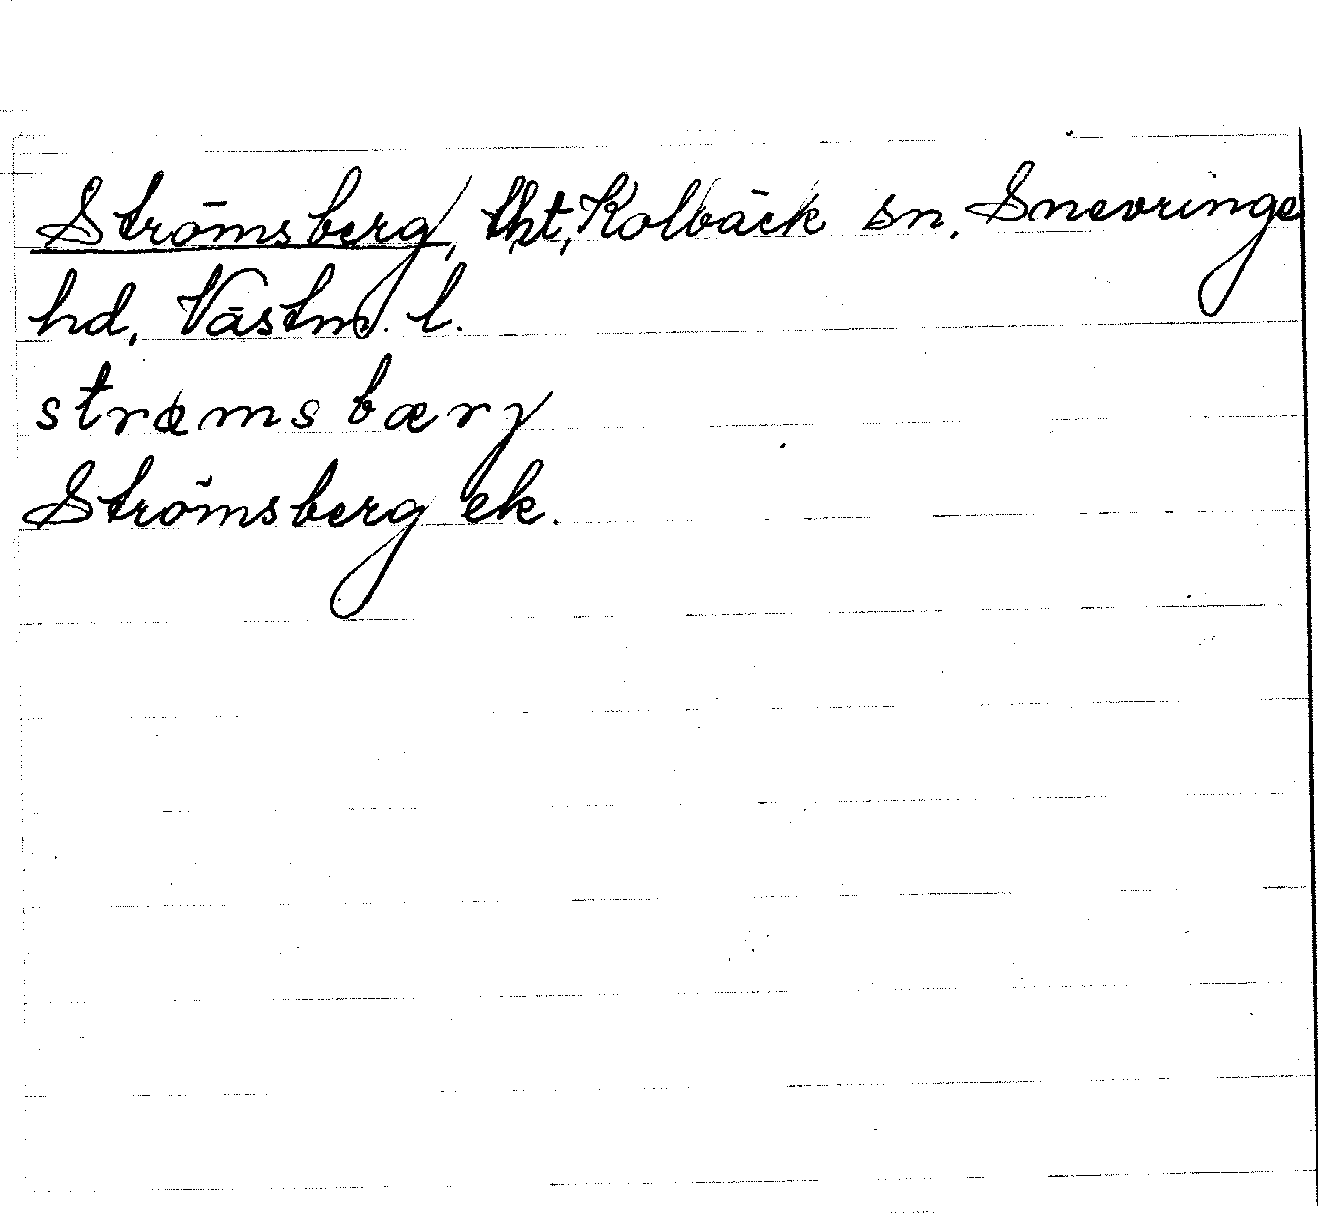 Strömsberg, lht, Kolbäck sn, Snevringe
hd, Västm. l.
strœmsbærj
Strömsberg ek.